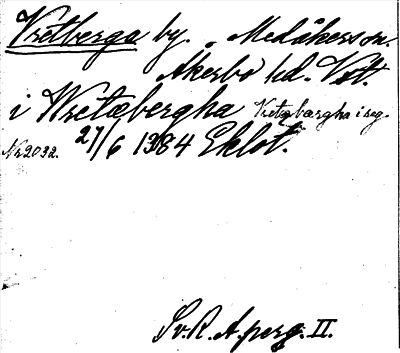 Vretberga by. Medåkers sn.
Åkerbo hd. Vstl.
i Wretæbergha Vretæbærgha i reg.
Nr 2032. 27/6 1384 Eklst.
Sv. R. A. perg. II.